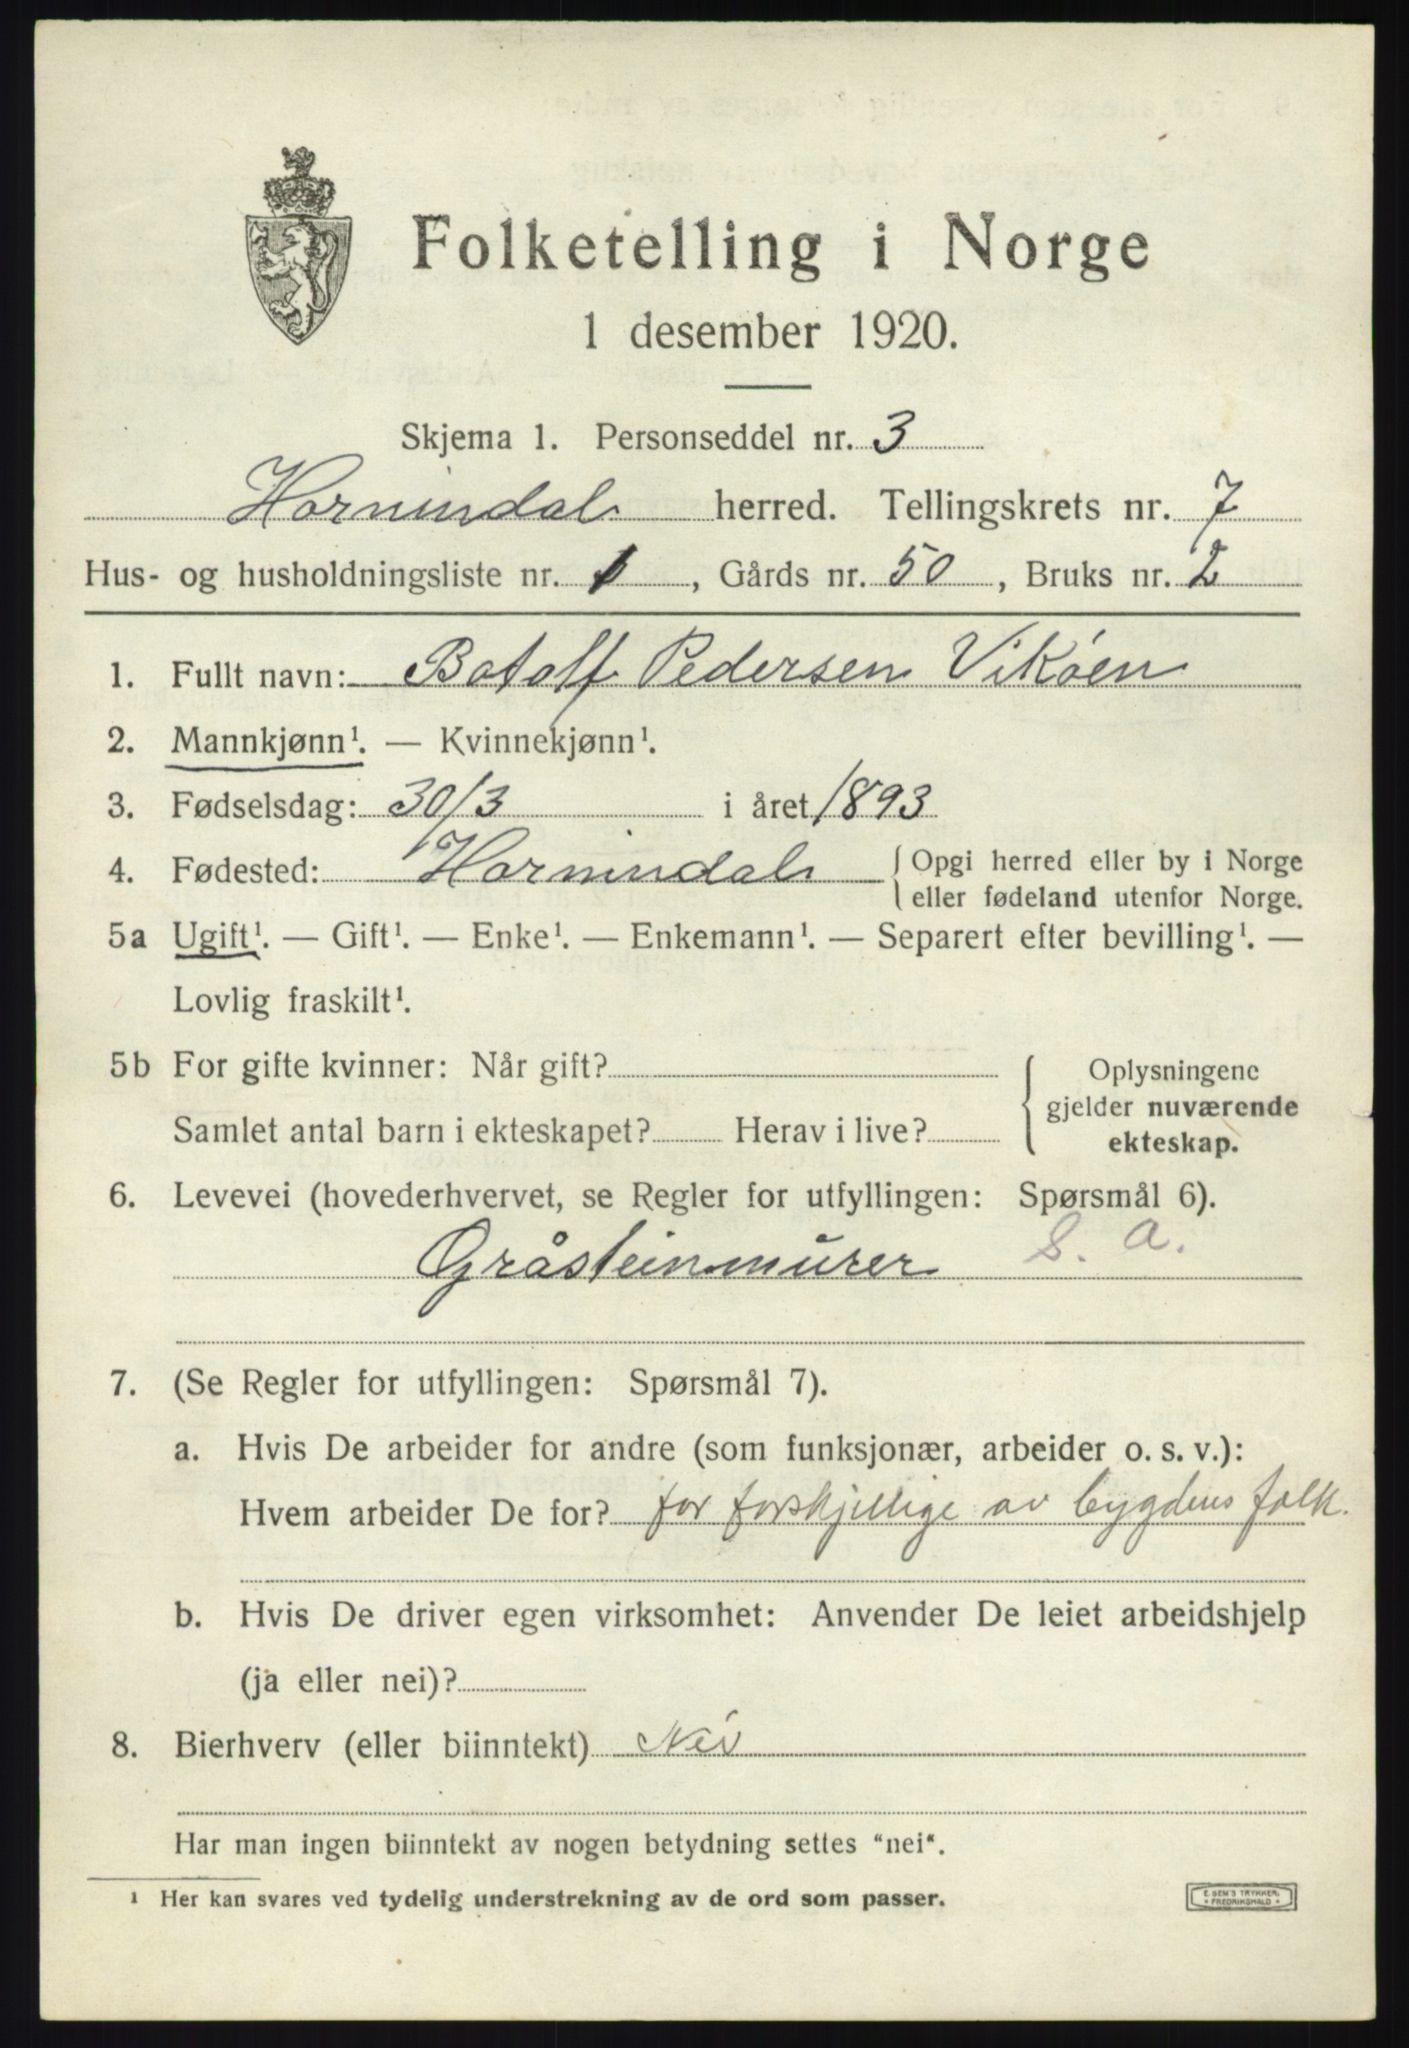 Folketelling i Norge
1 desember 1920.
Skjema 1. Personseddel nr. 3
Hornindal herred. Tellingskrets nr. 7
Hus- og husholdningsliste nr. 1, Gårds nr. 50, Bruks nr. 2
1. Fullt navn: Botolf Pedersen Vikøen
2. Mannkjønn¹. — Kvinnekjønn¹.
3. Fødselsdag: 30/3 i året 1893
4. Fødested: Hornindal { Opgi herred eller by i Norge
eller fødeland utenfor Norge.
5a Ugift¹. — Gift¹. — Enke¹. — Enkemann¹. — Separert efter bevilling¹. —
Lovlig fraskilt¹.
5b For gifte kvinner: Når gift?
Samlet antal barn i ekteskapet? Herav i live?
{ Oplysningene
gjelder nuværende
ekteskap.
6. Levevei (hovederhvervet, se Regler for utfyllingen: Spørsmål 6).
Gråsteinmurer S. a.
7. (Se Regler for utfyllingen: Spørsmål 7).
a. Hvis De arbeider for andre (som funksjonær, arbeider o. s. v.):
Hvem arbeider De for? for forskjellige av bygdens folk.
b. Hvis De driver egen virksomhet: Anvender De leiet arbeidshjelp
(ja eller nei)?
8. Bierhverv (eller biinntekt) Nei
Har man ingen biinntekt av nogen betydning settes "nei".
¹ Her kan svares ved tydelig understrekning av de ord som passer.
E. SEM'S TRYKKERI
FREDRIKSHALD